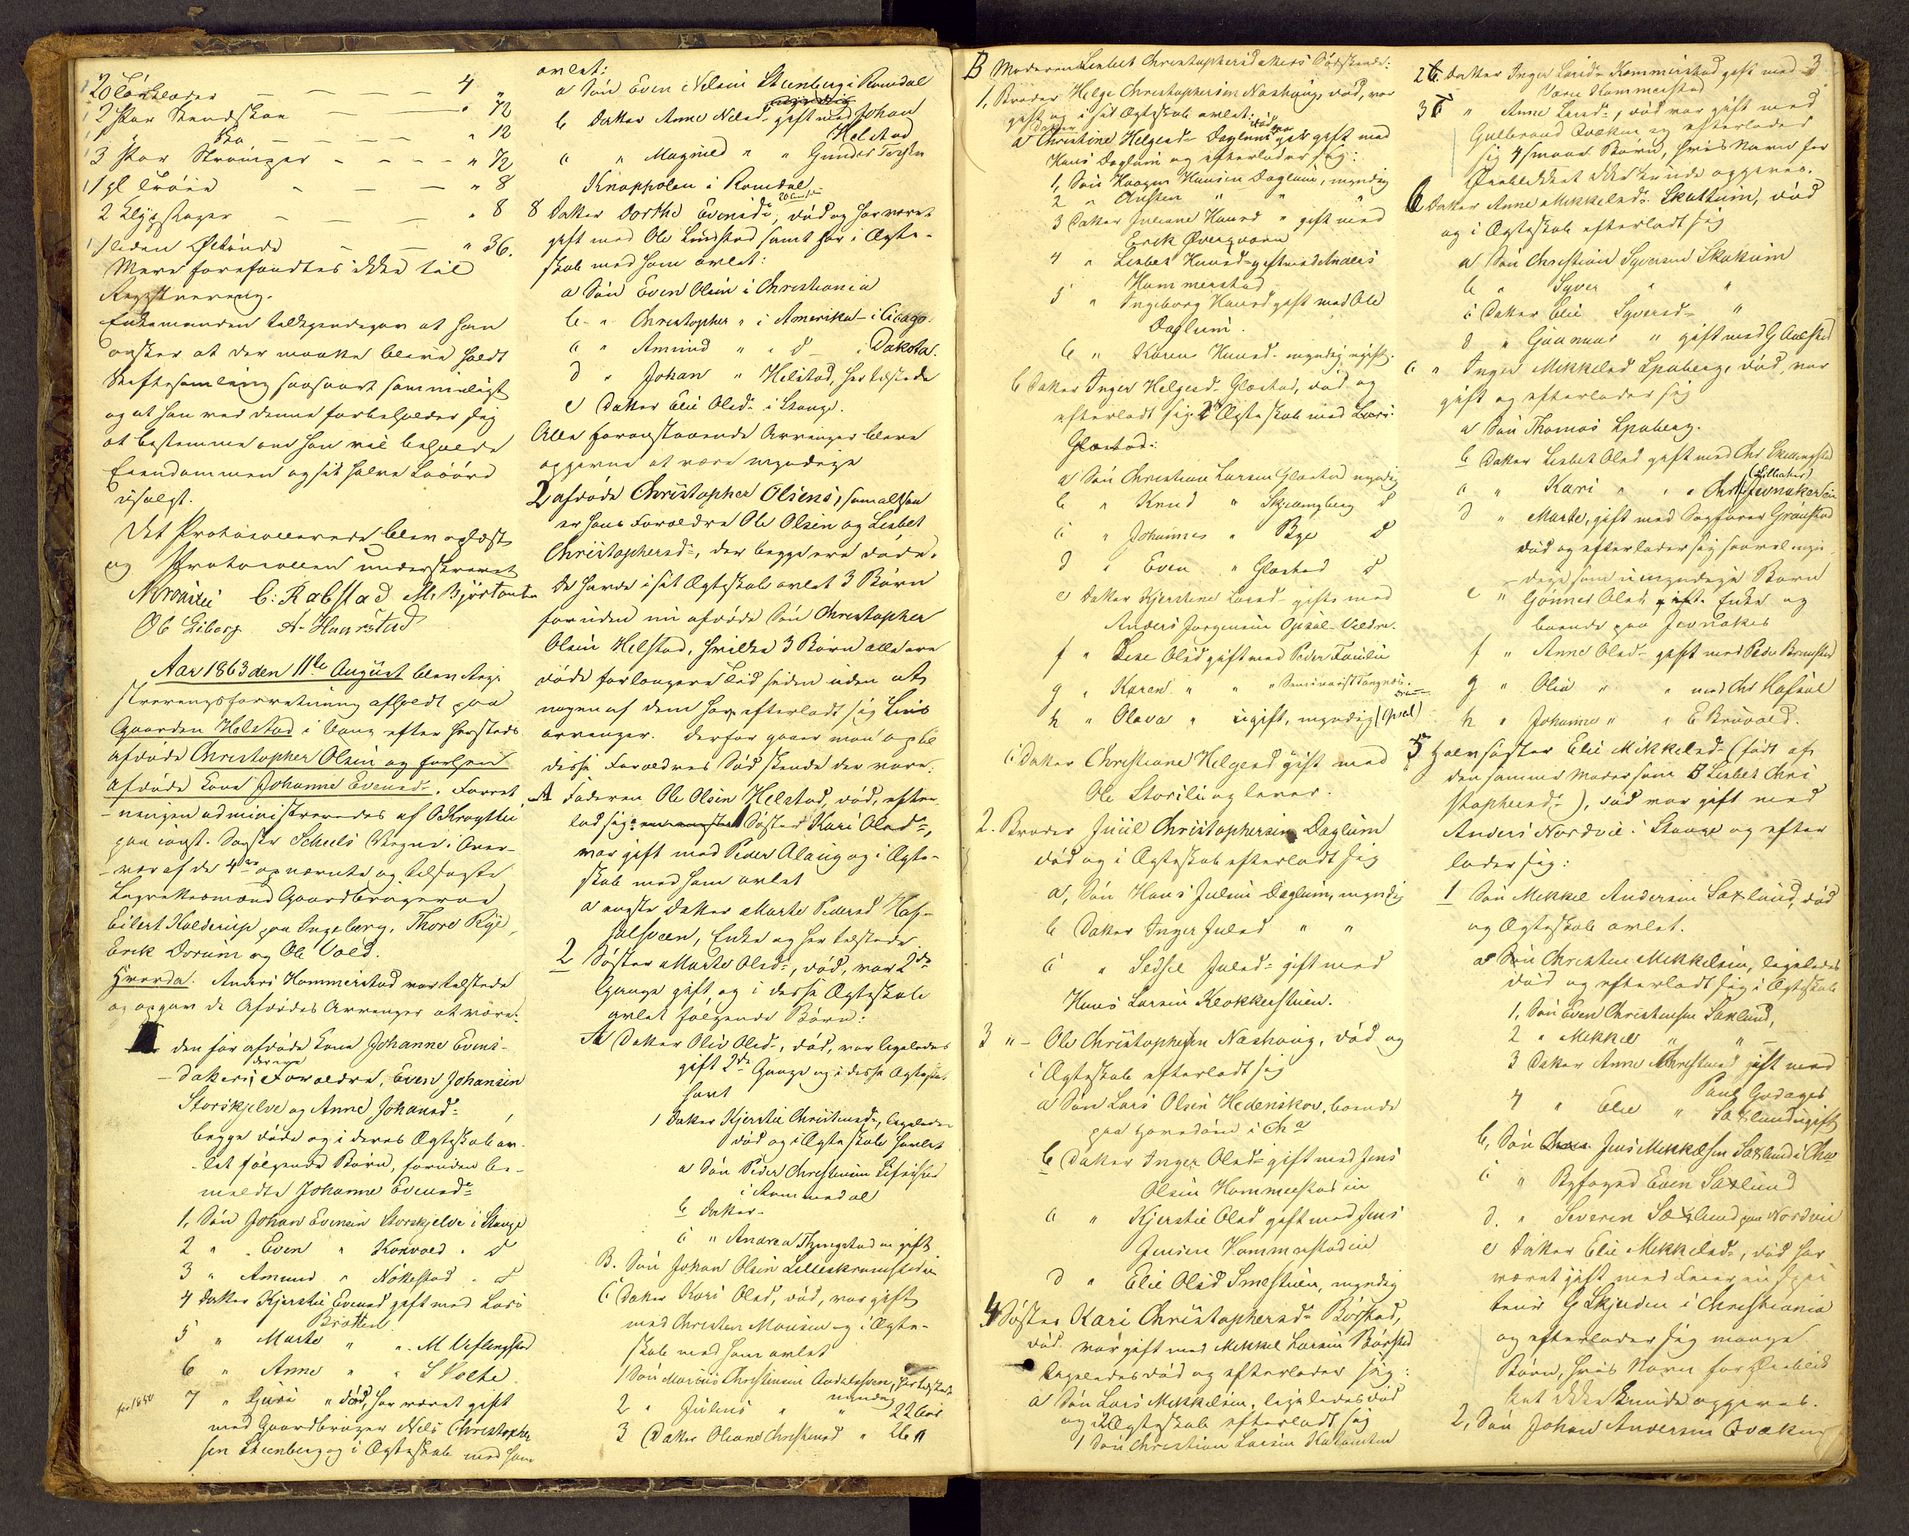 20 Tørklæder — — — — 4 "
2 Par Skindskoe — — — " 72
1 " Sko — — — " 12
3 Par Strømper — — — " 72
1 gl Trøie — — — " 8
2 Klipsager — — — " 8
1 liden Øltønde — — " 36.
Mere forefandtes ikke til
Registrering.
Enkemanden tilkjendegav at han
ønsker at der maatte blive holdt
Skiftesamling saasnart som muligt
og at han ved denne forbeholder sig
at bestemme om han vil beholde
Eiendommen og sit halve Løsøre
usolgt.
Det Protocollerede blev oplæst
og Protocollen underskrevet
C: Rabstad M. Bjørtomten
Ole Liberg A. Haarstad
Aar 1863 den 11te August blev Regi-
streringsforretning afholdt paa
Gaarden Helstad i Vang efter hersteds
afdøde Christopher Olsen og forhen
afdøde Kone Johanne Evensd. Forret
ningen administreredes af OKrogtei
paa const. Sogfr Scheels Vegne i Over-
vær af de 4de opnævnte og tilsagte
Lagrettesmænd Gaardbrugerne
Eilert Kolderup paa Ingeberg, Thore Rye,
Erik Dorum og Ole Vold.
Hvorda. Anders Hommerstad var tilstede
og opgav de Afdødes Arvinger at være:
den før afdøde Kone Johanne Evens-
datters Forældre, Even Johansen
Storskjelve og Anne Johansd.
begge døde og i deres Ægteskab av-
let følgende Børn, foruden be-
meldte Johanne Evensd.
1, Søn Johan Evensen Storskjelve i Stange
2 " Even " Korvald " d
3 " Amund " Nøkestad " d
4 Datter Kjerstie Evensd gift med Lars
Bratten
5 " Marte " " M Uflingstad
6 " Anne " " S Solte.
før 1850
7 " Guri " død, har været gift
med Gaardbruger Niels Christopher
sen Steenberg og i Ægteskab med ham
avlet:
a Søn Even Nilsen Steenberg i Romdal
b Datter Anne Nilsd. gift med Johan
Helstad
c " Magnild " " Gunder Torsten
Knappolen i Romdal
8 Datter Dorthe Evensd., død og har været
gift med Ole Lundstad samt har i Ægte-
skab med ham avlet:
a Søn Even Olsen i Christiania
b " Christopher " i Amerika i Cicago.
c " Amund " " d i Dakota.
d " Johan " Helstad, her tilstede
e Datter Elie Olsd. i Stange.
Alle foranstaaende Arvinger bleve
opgivne at være myndige
2 afdøde Christopher Olsens, som altsaa
er hans Forældre Ole Olsen og Lisbet
Christophersd., der begge ere døde.
De havde i sit Ægteskab avlet 3 Børn
foruden nu afdøde Søn Christopher
Olsen Helstad, hvilke 3 Børn alle ere
døde for længere Tid siden uden at
nogen af dem har efterladt sig Livs
arvinger. Derfor gaaer man op til
disse Forældres Sødskende der vare:
A Faderen Ole Olsen Helstad, død, efter-
lod sig 1 Søster Kari Olsd.,
var gift med Peder Alaug og i Ægte-
skab med ham avlet
a eneste Datter Marte Pedersd Haf-
salsveen, Enke og her tilstede
2 Søster Marte Olsd., død, var 2de
Gange gift og i disse Ægteskab
avlet følgende Børn:
A Datter Olia Olsd., død, var ligeledes
gift 2de Gange og i disse Ægteska.
havt
1 Datter Kjerstie Christensd., ligeledes
død og i Ægteskab havt
a Søn Peder Christensen
i Rommedal
b Datter
c " Andrea Thingstad ugift
B. Søn Johan Olsen Lilleskramstaden
C Datter Kari Olsd, død, var gift
med Christen Monsen og i Ægte-
skab med ham avlet
1 Søn Marius Christensen Audalsveen, her tilstede
myndig
2 " Julius " " 22 aar
3 Datter Oleane Christensd " 26 "
B Moderen Lisbet Christophersdatters Sødskende:
1, Broder Helge Christophersen Nashoug, død, var
gift og i sit Ægteskab avlet:
a Datter Christine Helgesd. Daglum død var gift med
Hans Daglum og efterlader sig:
1, Søn Haagen Hansen Daglum, myndig
2 " Austen " " "
3 Datter Juliane Hansd " gift med
Erik Øvergaard
4 " Lisbet Hansd. gift med Anders
Hommerstad
5 " Ingeborg Hansd gift med Ole
Daglum.
6 " Karen Hansd. myndig ugift.
b Datter Inger Helgesd. Glæstad, død og
efterladt sig i Ægteskab med Lars
Glæstad:
a Søn Christian Larsen Glæstad myndig
b " Knud " Skjerengberg d
c " Johannes " Bye d
d " Even " Glæstad d
e Datter Kjerstine Larsd. gift med
Anders Jørgensen Opsal Veldre.
f " Lise Olsd gift med Peder Faulie
g " Karen " " " Seminarist Tangnæs.
h " Olava " ugift, myndig (Opsal)
c Datter Christiane Helgesd gift med
Ole Storlie og lever.
2. Broder Juul Christophersen Daglum
død og i Ægteskab efterladt sig
a, Søn Hans Julsen Daglum, myndig
b Datter Inger Julsd " "
c " Sedsel Julsd. gift med
Hans Larsen Klokkerstuen.
3 " Ole Christophersen Nashoug, død og
i Ægteskab efterladt sig
a Søn Lars Olsen Hedenskov, boende
paa Hovedøen i Cha
b Datter Inger Olsd. gift med Jens
Olsen Hommerstadeie
c " Kjerstie Olsd gift med Jens
Jensen Hommerstadeie
d " Elie Olsd Smestuen, myndig
4 Søster Kari Christophersd. Børstad,
død var gift med Mikkel Larsen Børstad
ligeledes død og efterlader sig:
a Søn Lars Mikkelsen, ligeledes død
og i Ægteskab efterladt sig
1 Søn Christian Larsen Kalumten
3
2 Datter Inger Larsd. Hommerstad gift med
Vern Hommerstad
3 " Anne Larsd., død var gift med
Gulbrand Qvækne og efterlader
sig 4 smaae Børn, hvis Navn for
Øieblikket ikke kunde opgives.
b Datter Anne Mikkelsd. Skattum, død
og i Ægteskab efterladt sig
a Søn Christian Syversen Skattum
b " Syver " "
c Datter Elie Syversd. "
d " Gunnar " gift med G Aulstad
c " Inger Mikkelsd Spaberg, død, var
gift og efterlader sig
a Søn Thomas Spaberg.
b Datter Lisbet Olsd gift med Chr. Skrengstad
(Lilbakken)
c " Kari " " " Chr. Jevnakereie
d " Marte, gift med Sagfører Granstad
død og efterlader sig saavel myn-
dige som umyndige Børn
e " Gønner Olsd gift Enke og
boende paa Jevnaker
f " Anne Olsd. gift med Peder Bramstad
g " Olia " " med Chr Hafsal
h " Johanna " " E Kruvald.
5 Halvsøster Elie Mikkelsd. (født af
den samme Moder som B Lisbet Chri
stophersd.), død var gift med
Anders Nordvie i Stange og efter
lader sig:
1 Søn Mikkel Andersen Saxlund, død
og Ægteskab avlet.
a Søn Christen Mikkelsen, ligeledes
død og efterladt sig i Ægteskab
1, Søn Even Christensen Saxlund,
2 " Mikkel " "
3 Datter Anne Christensd gift med
Paul Godager
4 " Elie " Saxlund ugift
b, Søn Jens Mikkelsen Saxlund i Cha
c " Byfoged Even Saxlund
d. " Severin Saxlund paa Nordvie
e Datter Elie Mikkelsd., død har
været gift med
G Skjeden i Christiania
og efterlader sig mange
Børn, hvis Navn for Øieblik
ket ikke kunde opgives.
2, Søn Johan Andersen Qvækne